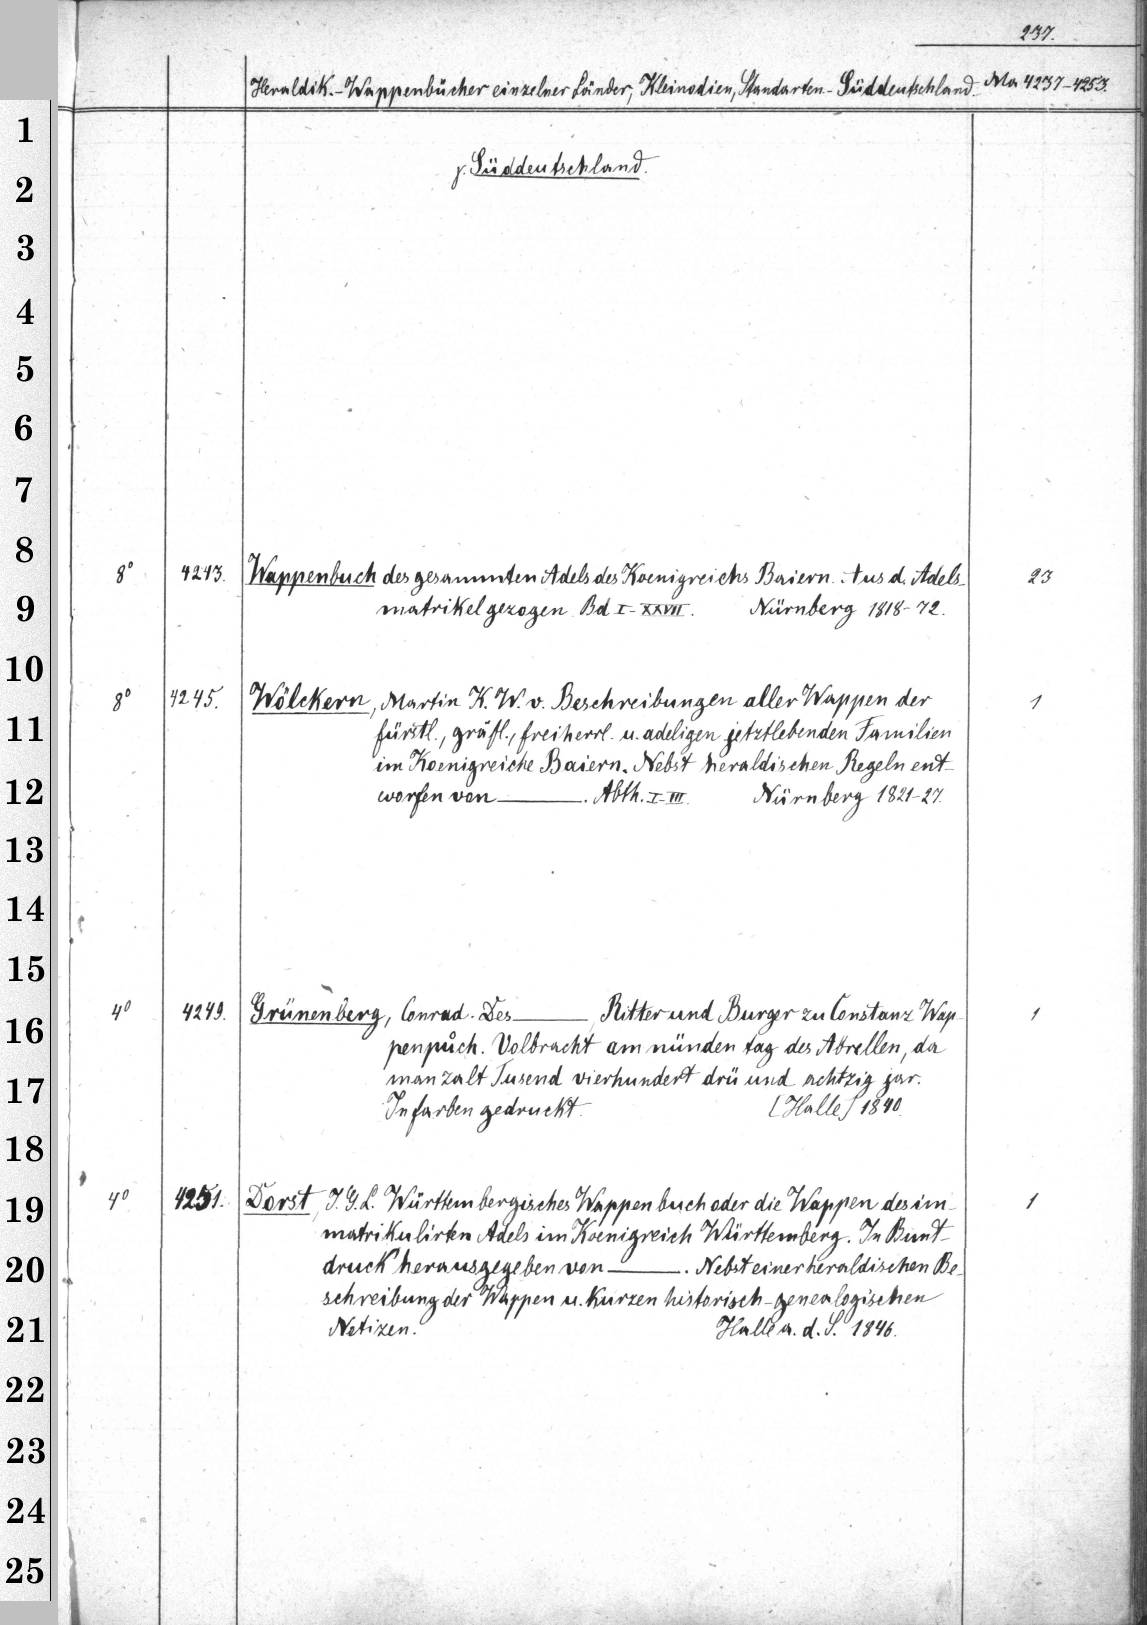 237.
Heraldik.-Wappenbücher einzelner Länder, Kleinodien, Standarten-Süddeutschland. Ma 4237-4253.
γ. Süddeutschland.
8° 4243. Wappenbuch des gesammten Adels des Koenigreichs Baiern. Aus d. Adels- 23
matrikel gezogen Bd I-XXVII. Nürnberg 1818-72.
8° 4245. Wölckern, Martin K. W. v. Beschreibungen aller Wappen der 1
fürstl., gräfl., freiherrl. u. adeligen jetztlebenden Familien
im Koenigreiche Baiern. Nebst heraldischen Regeln ent-
worfen von ———. Abth. I-III. Nürnberg 1821-27.
4° 4249. Grünenberg, Conrad. Des ——— Ritter und Burger zu Constanz Wap- 1
penpůch. Volbracht am nünden tag des Abrellen, da
man zalt Tusend vierhundert drü und achtzig jar.
In farben gedruckt. [Halle] 1840.
4° 4251. Dorst, J. G. L. Württembergisches Wappenbuch oder die Wappen des im- 1
matrikulirten Adels im Koenigreich Württemberg. In Bunt-
druck herausgegeben von ———. Nebst einer heraldischen Be-
schreibung der Wappen u. kurzen historisch-genealogischen
Notizen. Halle a. d. S. 1846.
1
2
3
4
5
6
7
8
9
10
11
12
13
14
15
16
17
18
19
20
21
22
23
24
25